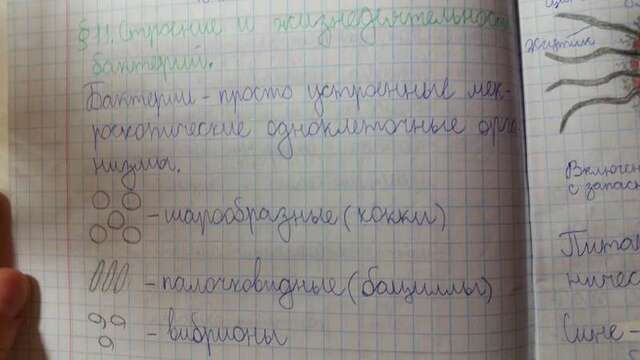 § 11. Строение и жизнедеятельность
бактерий.
Бактерии - просто устроенные мик-
роскопические одноклеточные орга-
низмы.
- шарообразные (кокки)
- палочковидные (бациллы)
- вибрионы
жгутик
Включен
с запасн
Пита
ничес
Сине -